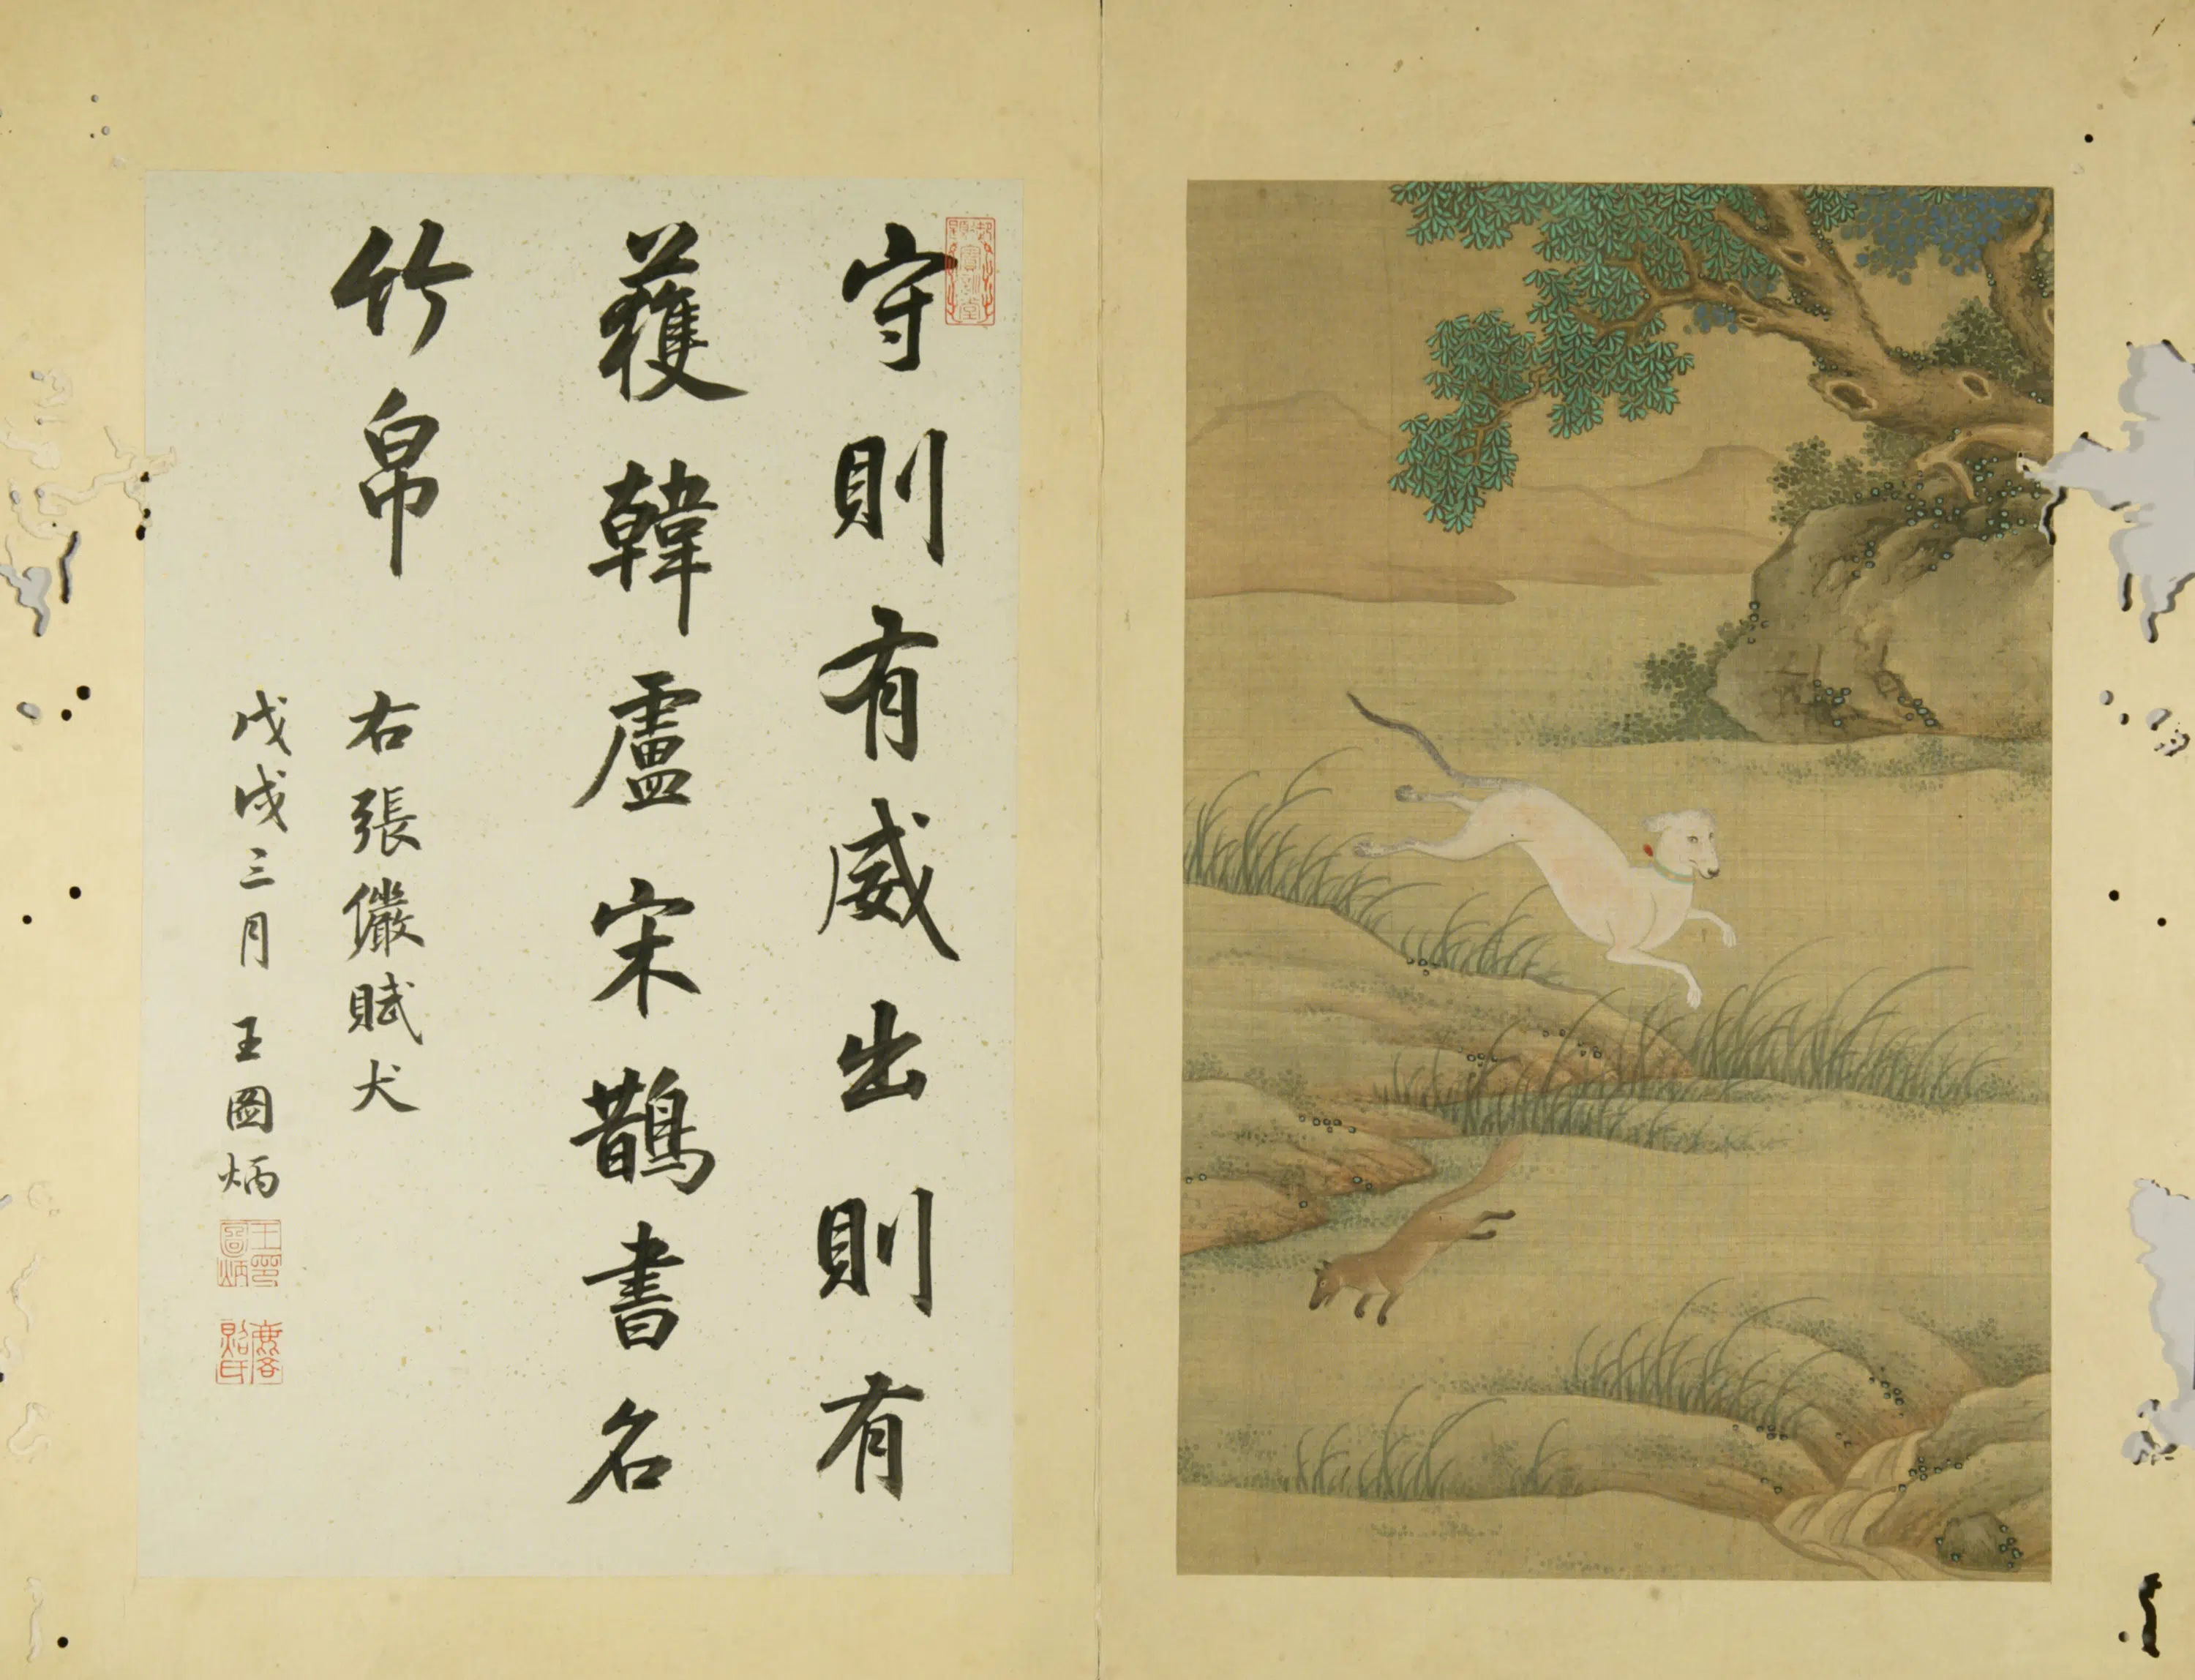 守則有威出則有
獲韓盧宋鵲書名
竹帛
右張儼賦犬
戊戌三月 王圖炳
王圖炳印